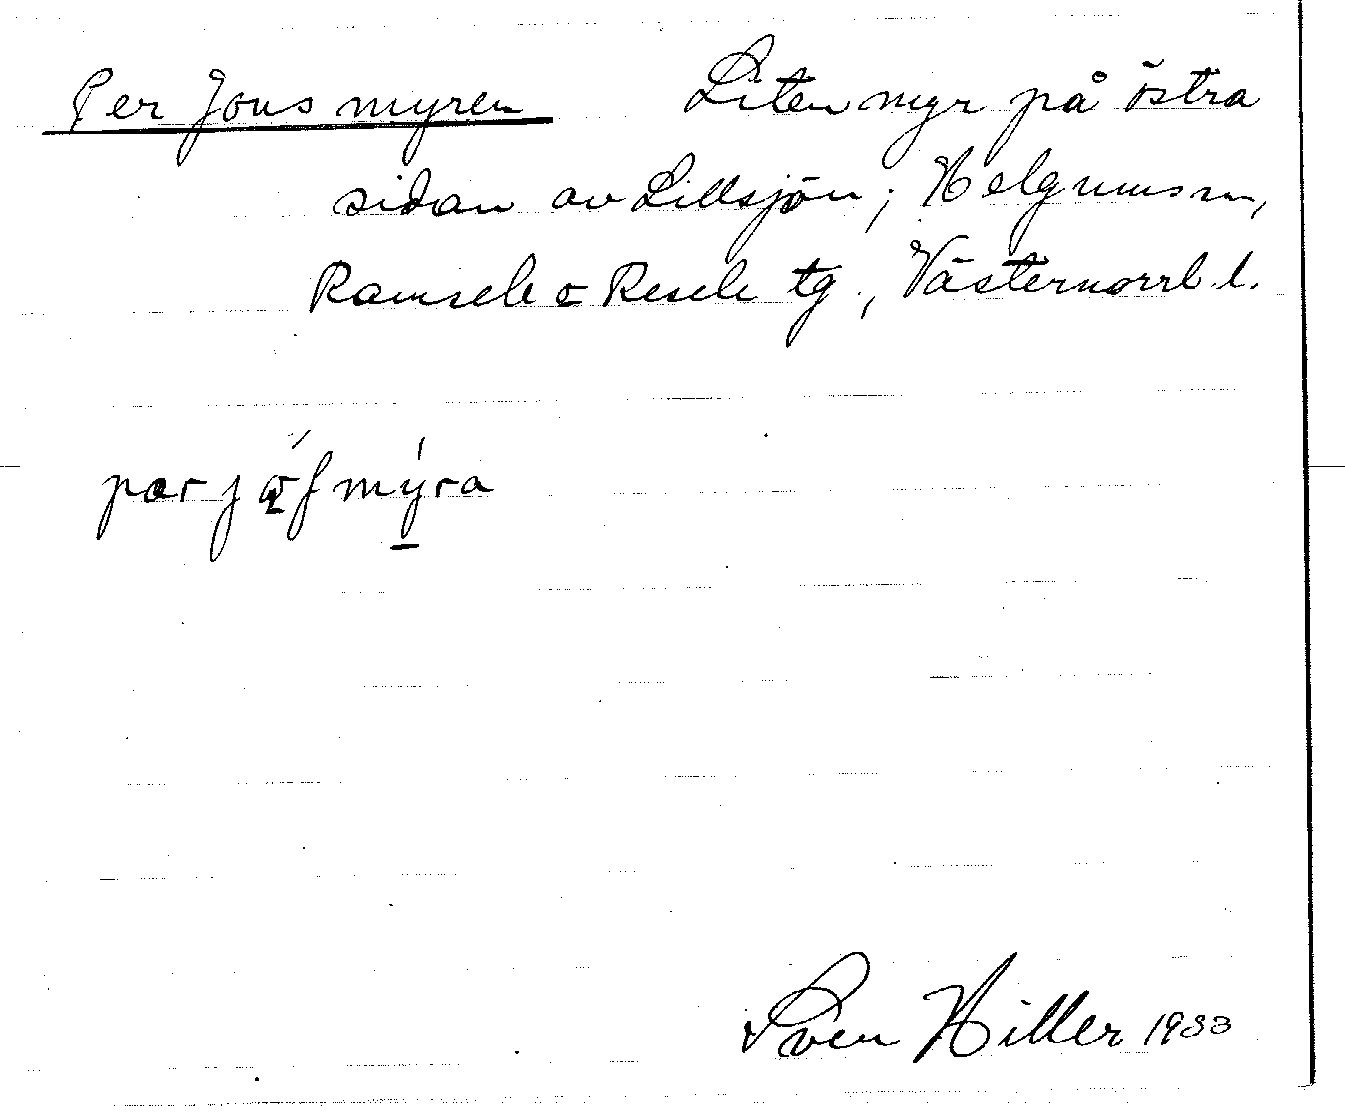 Per Jonsmyren Liten myr på östra
sidan av Lillsjön; Helgumsn,
Ramsele o Resele tg., Västernorrl.l.
Sven Hiller 1933